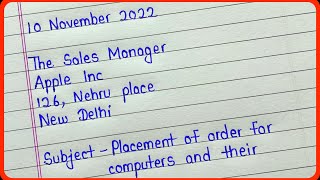 10 November 2022
The Sales Manager
Apple Inc
126, Nehru place
New Delhi
Subject - Placement of order for
computers and their